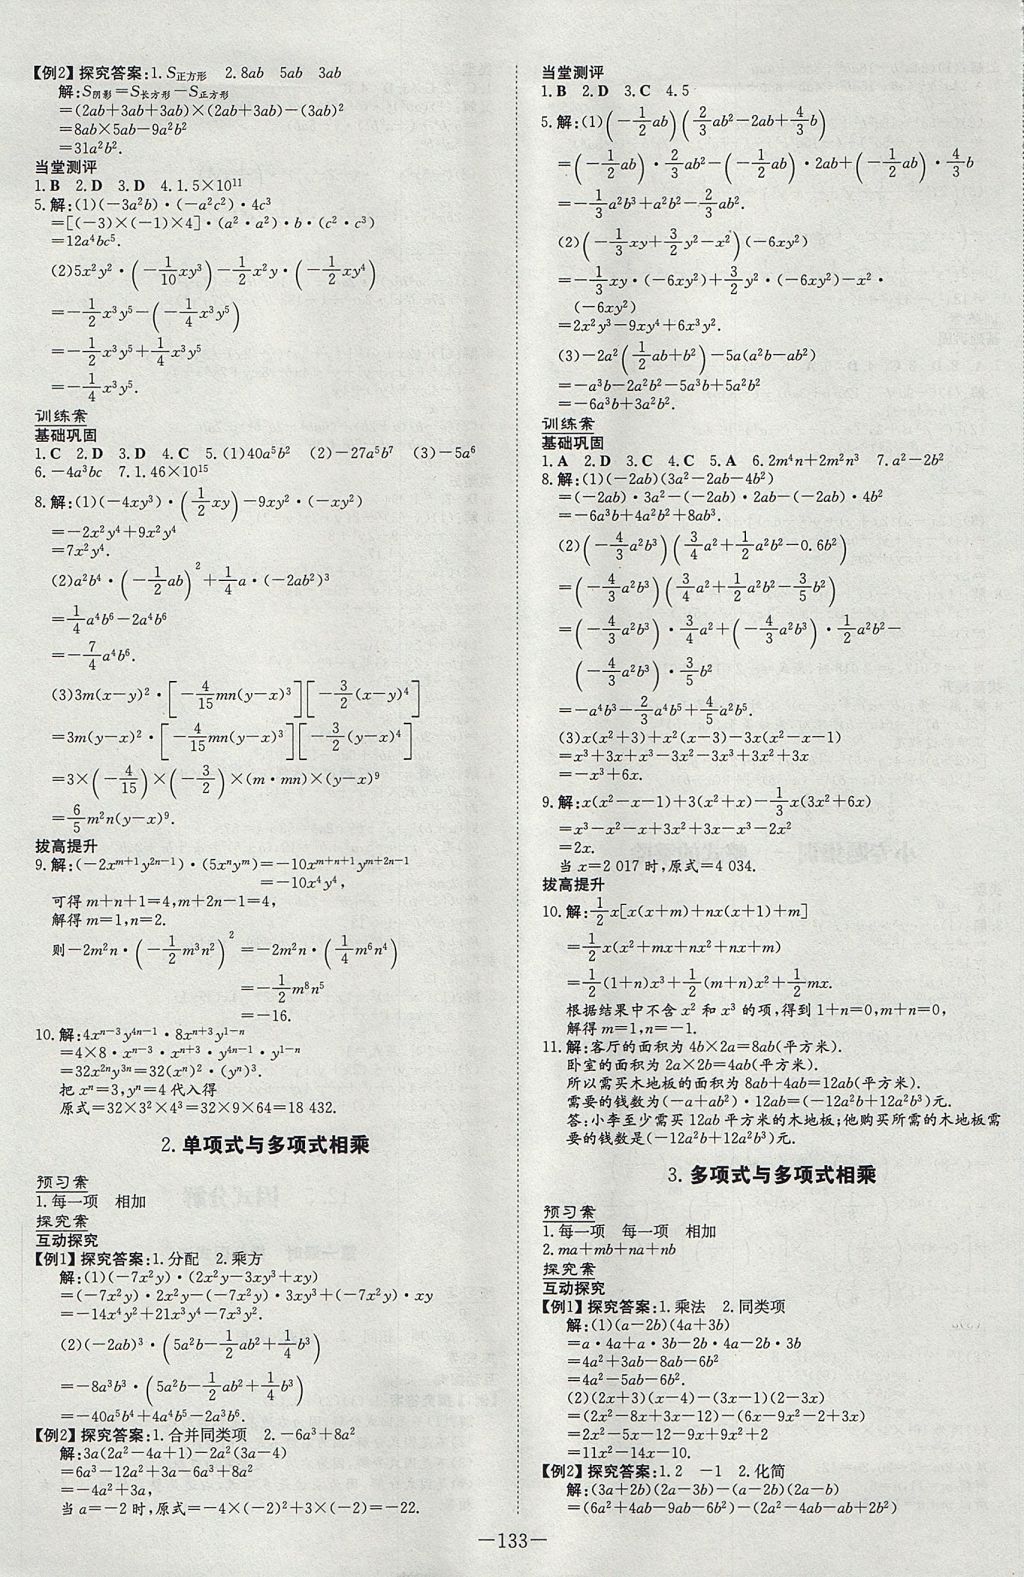 【例2】探究答案:1.S正方形 2.8ab 5ab 3ab
解:S阴影=S长方形-S正方形
=(2ab+3ab+3ab)×(2ab+3ab)-(3ab)²
=8ab×5ab-9a²b²
=31a²b².
当堂测评
1.B 2.D 3.D 4.1.5×10¹¹
5.解:(1)(-3a²b)·(-a²c²)·4c³
=[(-3)×(-1)×4]·(a²·a²)·b·(c²·c³)
=12a⁴bc⁵.
(2)5x²y²·(-1/10xy³)-1/2x²y·(-1/2xy⁴)
=-1/2x³y⁵-(-1/4x³y⁵)
=-1/2x³y⁵+1/4x³y⁵
=-1/4x³y⁵.
训练案
基础巩固
1.C 2.D 3.D 4.C 5.(1)40a⁵b² (2)-27a⁵b⁷ (3)-5a⁶
6.-4a³bc 7.1.46×10¹⁵
8.解:(1)(-4xy³)·(1/2xy)-9xy²·(-xy²)
=-2x²y⁴+9x²y⁴
=7x²y⁴.
(2)a²b⁴·(-1/2ab)²+1/4a·(-2ab²)³
=1/4a⁴b⁶-2a⁴b⁶
=-7/4a⁴b⁶.
(3)3m(x-y)²·[-4/15mn(y-x)³][-3/2(x-y)⁴]
=3m(y-x)²·[-4/15mn(y-x)³][-3/2(y-x)⁴]
=3×(-4/15)×(-3/2)×(m·mn)×(y-x)⁹
=6/5m²n(y-x)⁹.
拔高提升
9.解:(-2xᵐ⁺¹y²ⁿ⁻¹)·(5xⁿyᵐ)=-10xᵐ⁺ⁿ⁺¹yᵐ⁺²ⁿ⁻¹
=-10x⁴y⁴,
可得m+n+1=4,m+2n-1=4,
解得m=1,n=2.
则-2m²n·(-1/2m³n²)²=-2m²n·(1/4m⁶n⁴)
=-1/2m⁸n⁵
=-16.
10.解:4xⁿ⁻³y⁴ⁿ⁻¹·8xⁿ⁺³y¹⁻ⁿ
=4×8·xⁿ⁻³·xⁿ⁺³·y⁴ⁿ⁻¹·y¹⁻ⁿ
=32x²ⁿy³ⁿ=32(xⁿ)²·(yⁿ)³.
把xⁿ=3,yⁿ=4代入得
原式=32×3²×4³=32×9×64=18 432.
2.单项式与多项式相乘
预习案
1.每一项 相加
探究案
互动探究
【例1】探究答案:1.分配 2.乘方
解:(1)(-7x²y)·(2x²y-3xy³+xy)
=(-7x²y)·2x²y-(-7x²y)·3xy³+(-7x²y)·xy
=-14x⁴y²+21x³y⁴-7x³y².
(2)(-2ab)³·(5a²b-1/2ab²+1/4b³)
=-8a³b³·(5a²b-1/2ab²+1/4b³)
=-40a⁵b⁴+4a⁴b⁵-2a³b⁶.
【例2】探究答案:1.合并同类项 2.-6a³+8a²
解:3a(2a²-4a+1)-2a²(3a-4)
=6a³-12a²+3a-6a³+8a²
=-4a²+3a,
当a=-2时,原式=-4×(-2)²+3×(-2)=-22.
当堂测评
1.B 2.D 3.C 4.5
5.解:(1)(-1/2ab)(2/3ab²-2ab+4/3b)
=(-1/2ab)·2/3ab²-(-1/2ab)·2ab+(-1/2ab)·4/3b
=-1/3a²b³+a²b²-2/3ab².
(2)(-1/3xy+3/2y²-x²)(-6xy²)
=-1/3xy·(-6xy²)+3/2y²·(-6xy²)-x²·
(-6xy²)
=2x²y³-9xy⁴+6x³y².
(3)-2a²(1/2ab+b²)-5a(a²b-ab²)
=-a³b-2a²b²-5a³b+5a²b²
=-6a³b+3a²b².
训练案
基础巩固
1.A 2.D 3.C 4.C 5.A 6.2m⁴n+2m²n³ 7.a²-2b²
8.解:(1)(-2ab)(3a²-2ab-4b²)
=(-2ab)·3a²-(-2ab)·2ab-(-2ab)·4b²
=-6a³b+4a²b²+8ab³.
(2)(-4/3a²b³)(3/4a²+1/2a²b²-0.6b²)
=(-4/3a²b³)(3/4a²+1/2a²b²-3/5b²)
=(-4/3a²b³)·3/4a²+(-4/3a²b³)·1/2a²b²-
(-4/3a²b³)·3/5b²
=-a⁴b³-2/3a⁴b⁵+4/5a²b⁵.
(3)x(x²+3)+x²(x-3)-3x(x²-x-1)
=x³+3x+x³-3x²-3x³+3x²+3x
=-x³+6x.
9.解:x(x²-x-1)+3(x²+x)-1/3x(3x²+6x)
=x³-x²-x+3x²+3x-x³-2x²
=2x.
当x=2 017时,原式=4 034.
拔高提升
10.解:1/2x[x(x+m)+nx(x+1)+m]
=1/2x(x²+mx+nx²+nx+m)
=1/2(1+n)x³+1/2(m+n)x²+1/2mx.
根据结果中不含x²和x³的项,得到1+n=0,m+n=0,
解得m=1,n=-1.
11.解:客厅的面积为4b×2a=8ab(平方米).
卧室的面积为2a×2b=4ab(平方米).
所以需买木地板的面积为8ab+4ab=12ab(平方米).
需要的钱数为(-a+ab²)·12ab=(-12a²b+12a²b³)元.
答:小李至少需买12ab平方米的木地板;他购买所需的木地板需
要的钱数是(-12a²b+12a²b³)元.
3.多项式与多项式相乘
预习案
1.每一项 每一项 相加
2.ma+mb+na+nb
探究案
互动探究
【例1】探究答案:1.乘法 2.同类项
解:(1)(a-2b)(4a+3b)
=a·4a+a·3b-2b·4a-2b·3b
=4a²+3ab-8ab-6b²
=4a²-5ab-6b².
(2)(2x+3)(x-4)-(3x-1)(2-3x)
=(2x²-8x+3x-12)-(6x-9x²-2+3x)
=2x²-5x-12-9x+9x²+2
=11x²-14x-10.
【例2】探究答案:1.2 -1 2.化简
解:(3a+2b)(2a-3b)-(a-2b)(2a-b)
=(6a²+4ab-9ab-6b²)-(2a²-4ab-ab+2b²)
-133-